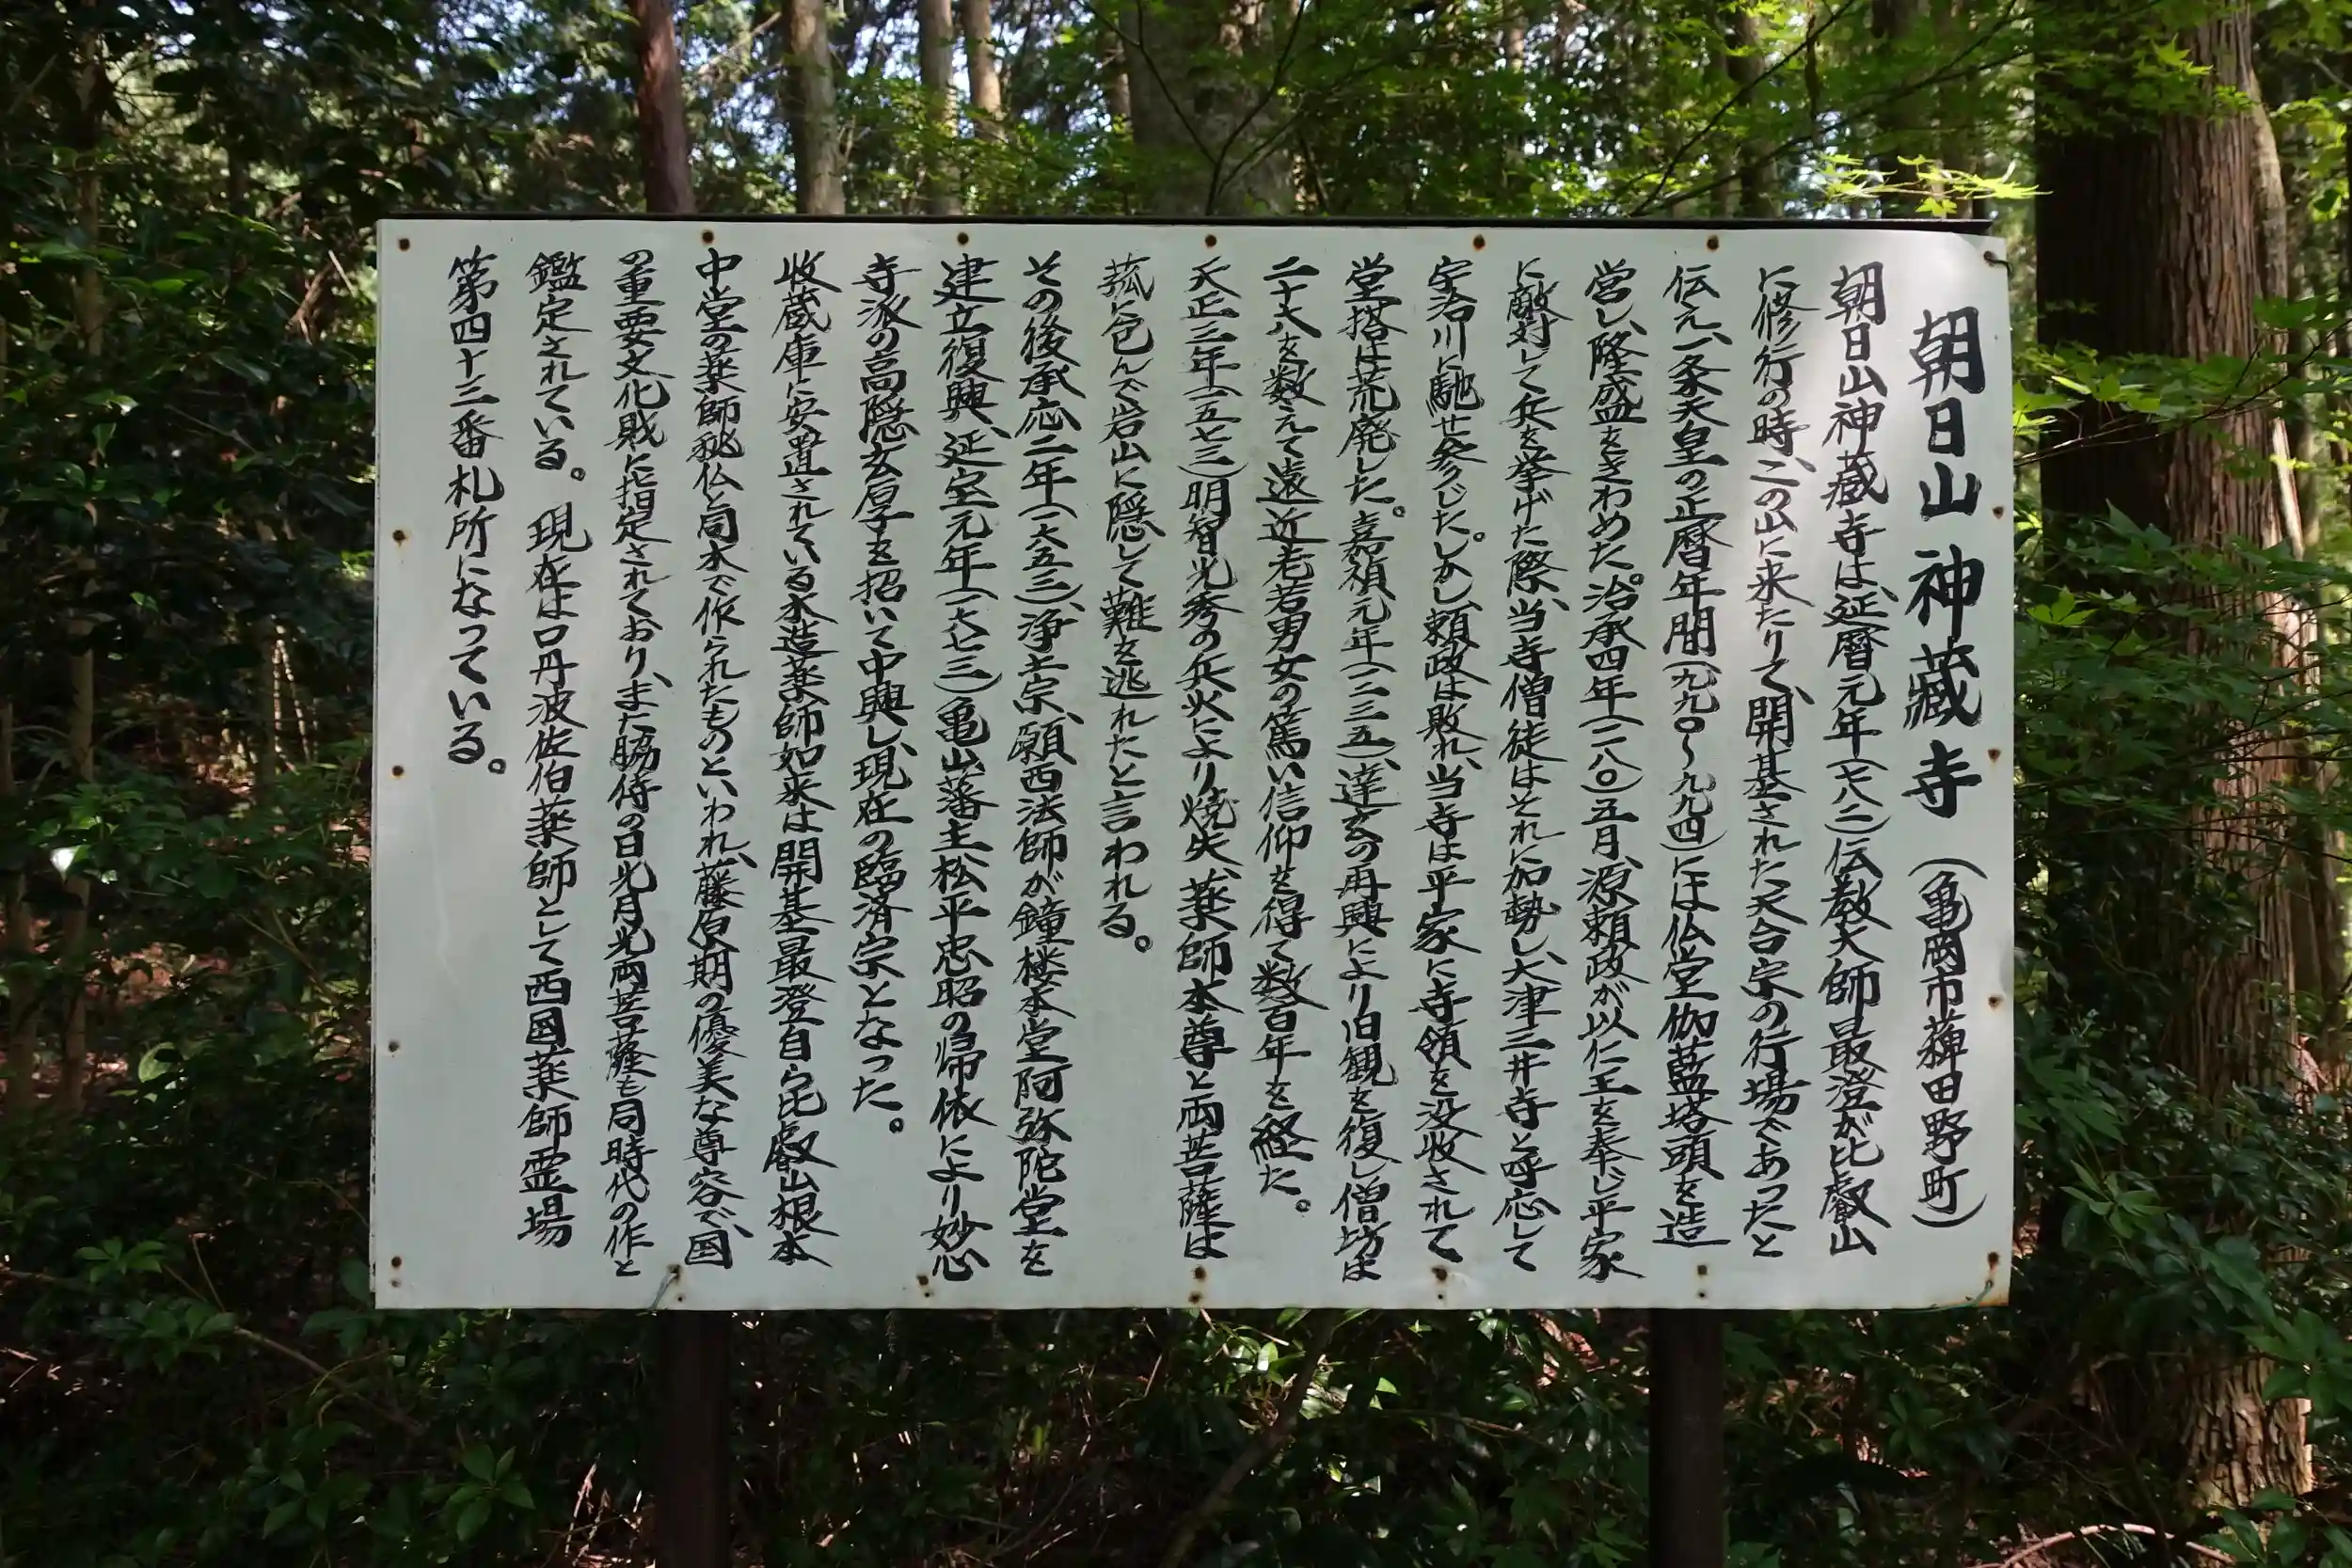 朝日山 神蔵寺 (亀岡市薭田野町)
朝日山神蔵寺は、延暦元年(七八二)伝教大師最澄が比叡山
に修行の時、この山に来たりて、開基された天台宗の行場であったと
伝え、一条天皇の正暦年間(九九〇〜九九四)には仏堂伽藍塔頭を造
営し、隆盛をきわめた。治承四年(一一八〇)五月、源頼政が以仁王を奉じ平家
に敵対して兵を挙げた際、当寺僧徒はそれに加勢し、大津三井寺と呼応して
宇治川に馳せ参じた。しかし、頼政は敗れ、当寺は平家に寺領を没収されて
堂塔は荒廃した。嘉禎元年(一二三五)、達玄の再興により旧観を復し僧坊は
二十六を数えて遠近老若男女の篤い信仰を得て数百年を経た。
天正三年(一五七三)明智光秀の兵火により焼失、薬師本尊と両菩薩は
菰に包んで岩山に隠して難を逃れたと言われる。
その後承応二年(一六五三)、浄土宗、願西法師が鐘楼本堂阿弥陀堂を
建立復興、延宝元年(一六七三)亀山藩主松平忠昭の帰依により妙心
寺派の高隠玄厚子を招いて中興し、現在の臨済宗となった。
収蔵庫に安置されている木造薬師如来は開基最澄自ら比叡山根本
中堂の薬師秘仏と同木で作られたものといわれ、藤原期の優美な尊容で、国
の重要文化財に指定されており、また脇侍の日光月光両菩薩も同時代の作と
鑑定されている。現在は口丹波佐伯薬師として西国薬師霊場
第四十三番札所になっている。